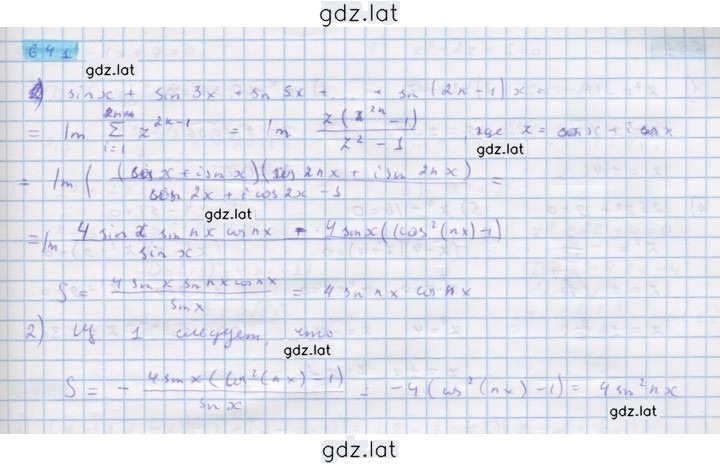 gdz.lat
641
gdz.lat
1) sin x + sin 3x + sin 5x + ... + sin (2n-1) x =
= Im 2n-1 ∑ i=1 z^{2k-1} = Im z(z^{2n}-1) / z^2-1, где z = cos x + i sin x
gdz.lat
= Im ( (cos x + i sin x)(cos 2nx + i sin 2nx) / 2x + i cos 2x - 1 =
gdz.lat
= Im 4 sin x sin nx cos nx - 4 sin x((cos^2(nx)-1) / sin x
S = 4 sin x sin nx cos nx / sin x = 4 sin nx cos nx
2) Из 1 следует, что
gdz.lat
S = - 4 sin x((cos^2(nx)-1) / sin x = -4(cos^2(nx)-1) = 4 sin^2 nx
gdz.lat
gdz.lat